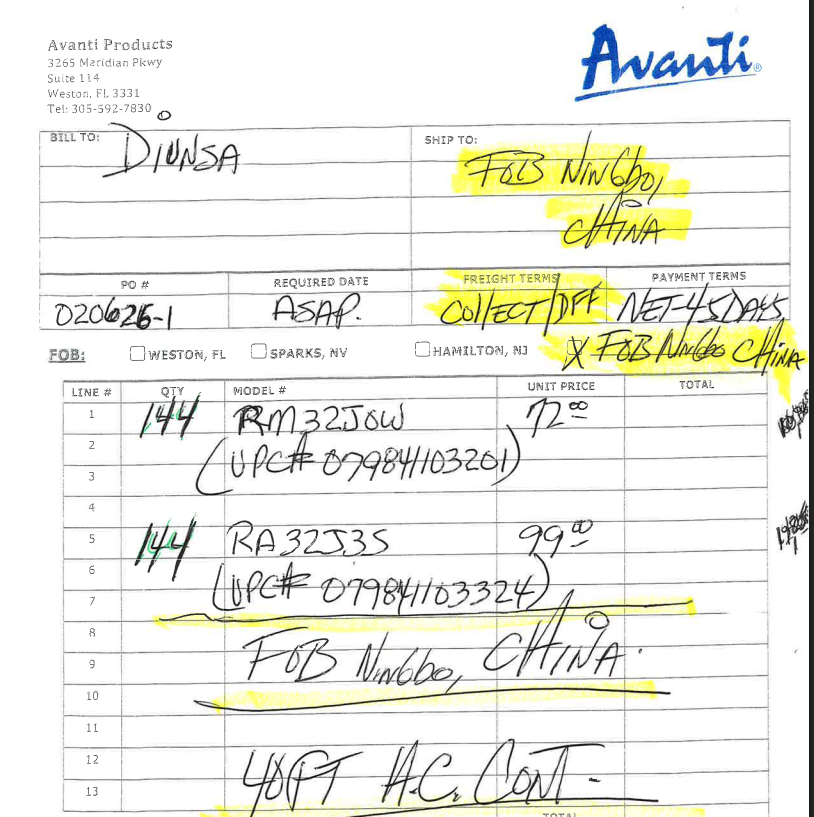 Avanti Products
3265 Meridian Pkwy
Suite 114
Weston, FL 3331
Tel: 305-592-7830
Avanti®
BILL TO: DIUNSA
SHIP TO: FOB NINGBO,
CHINA
PO # REQUIRED DATE FREIGHT TERMS PAYMENT TERMS
020626-1 ASAP. COLLECT/DFF NET-45 DAYS
FOB: WESTON, FL SPARKS, NV HAMILTON, NJ X FOB NINGBO CHINA
LINE # QTY MODEL # UNIT PRICE TOTAL
1 144 RM32J0W 72.00
2
(UPC# 079841103201)
3
4
5 144 RA32J3S 99.00
6
(UPC# 079841103324)
7
8
FOB NINGBO, CHINA.
9
10
11
12
40FT H.C. CONT-
13
TOTAL